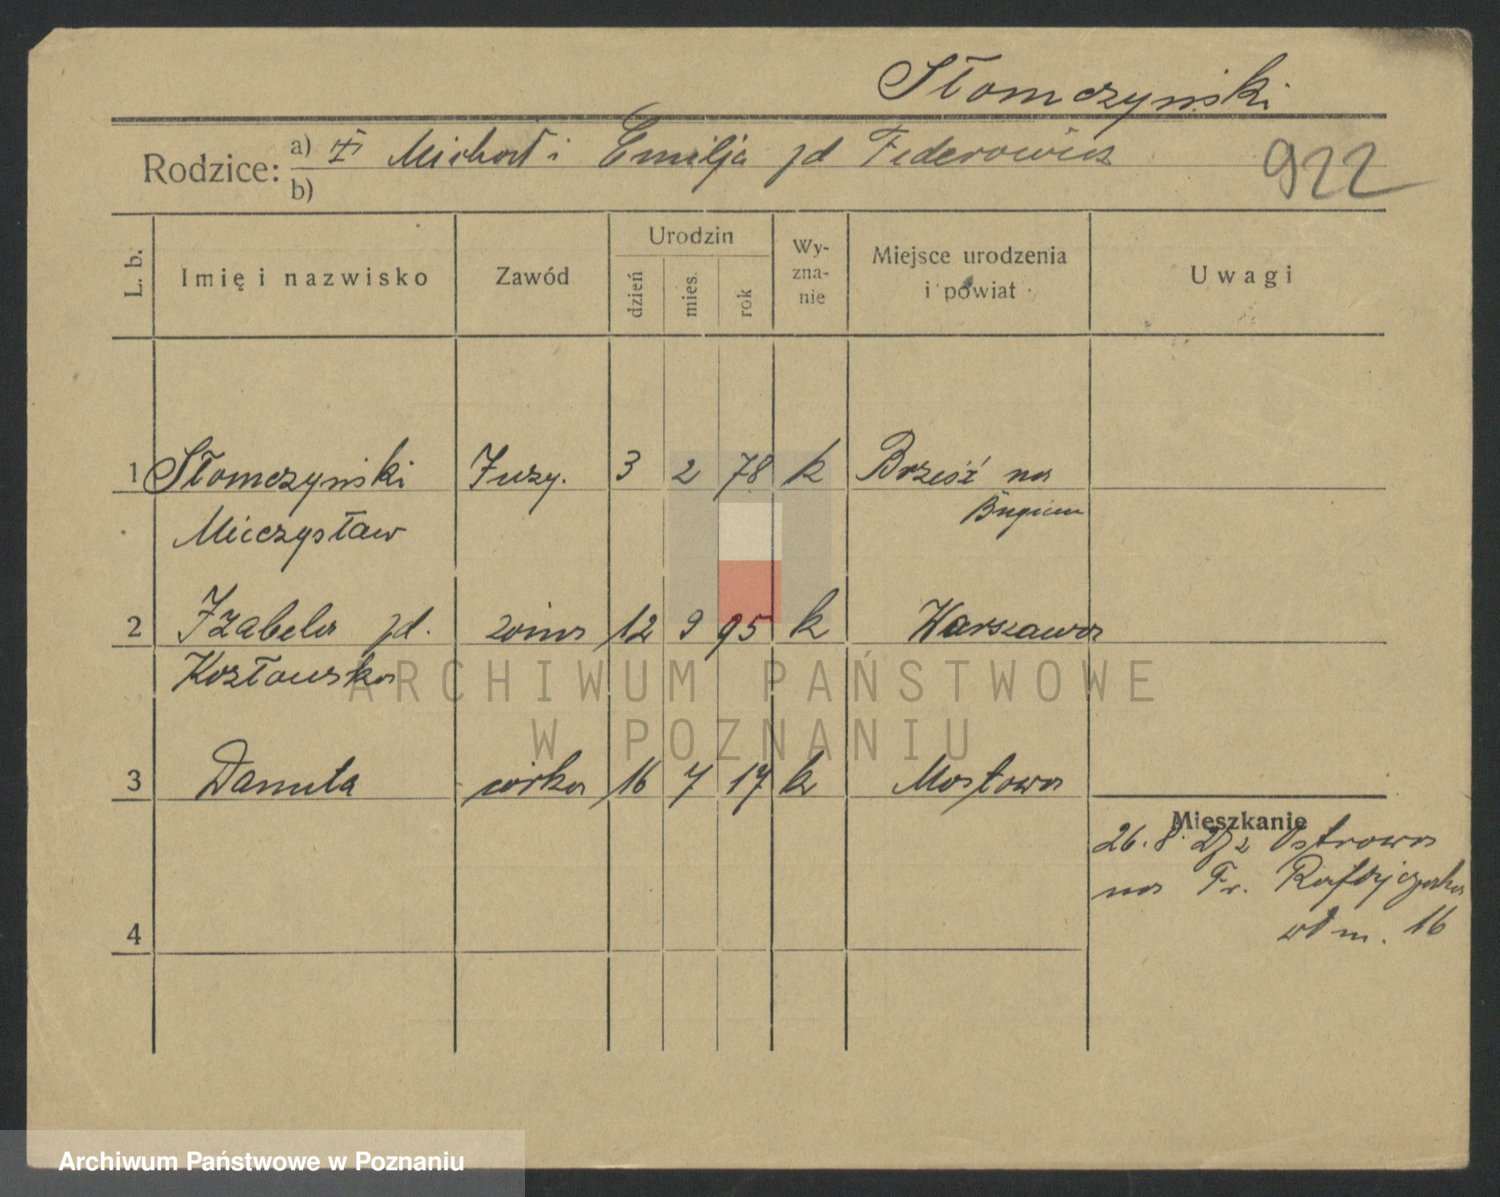 Słomczyński
Rodzice: a) Michał i Emilja zd Federowicz
b)
922
L. b. Imię i nazwisko Zawód Urodzin dzień mies. rok Wy-zna-nie Miejsce urodzenia i powiat Uwagi
1 Słomczyński 3 2 78 k Brześć na
Mieczysław Bugiem
2 Izabela zd. żona 12 9 95 k Warszawa
Kozłowska
3 Danuta córka 16 7 17 k Mostowa
Mieszkanie
26. 8. z Ostrowa
na Fr. Ratajczaka
m. 16
4
ARCHIWUM PAŃSTWOWE
W POZNANIU
Archiwum Państwowe w Poznaniu